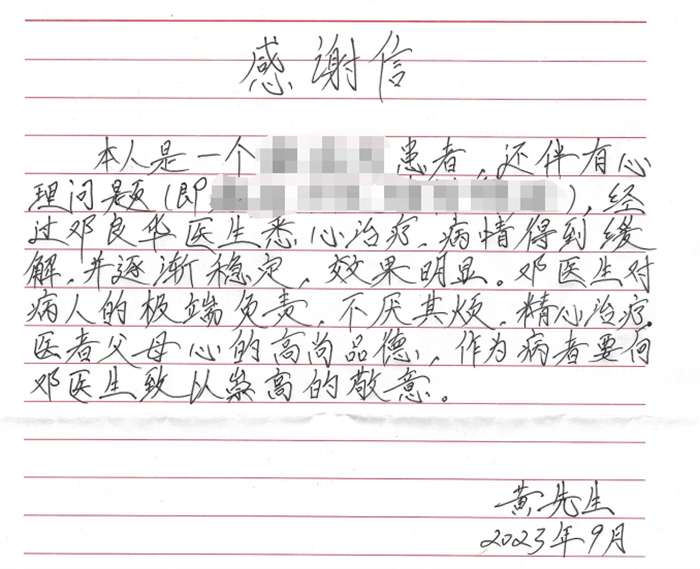 感谢信
本人是一个 患者,还伴有心
理问题(即 ),经
过邓良华医生悉心治疗,病情得到缓
解,并逐渐稳定,效果明显。邓医生对
病人的极端负责,不厌其烦,精心治疗。
医者父母心的高尚品德,作为病者要向
邓医生致以崇高的敬意。
黄先生
2023年9月